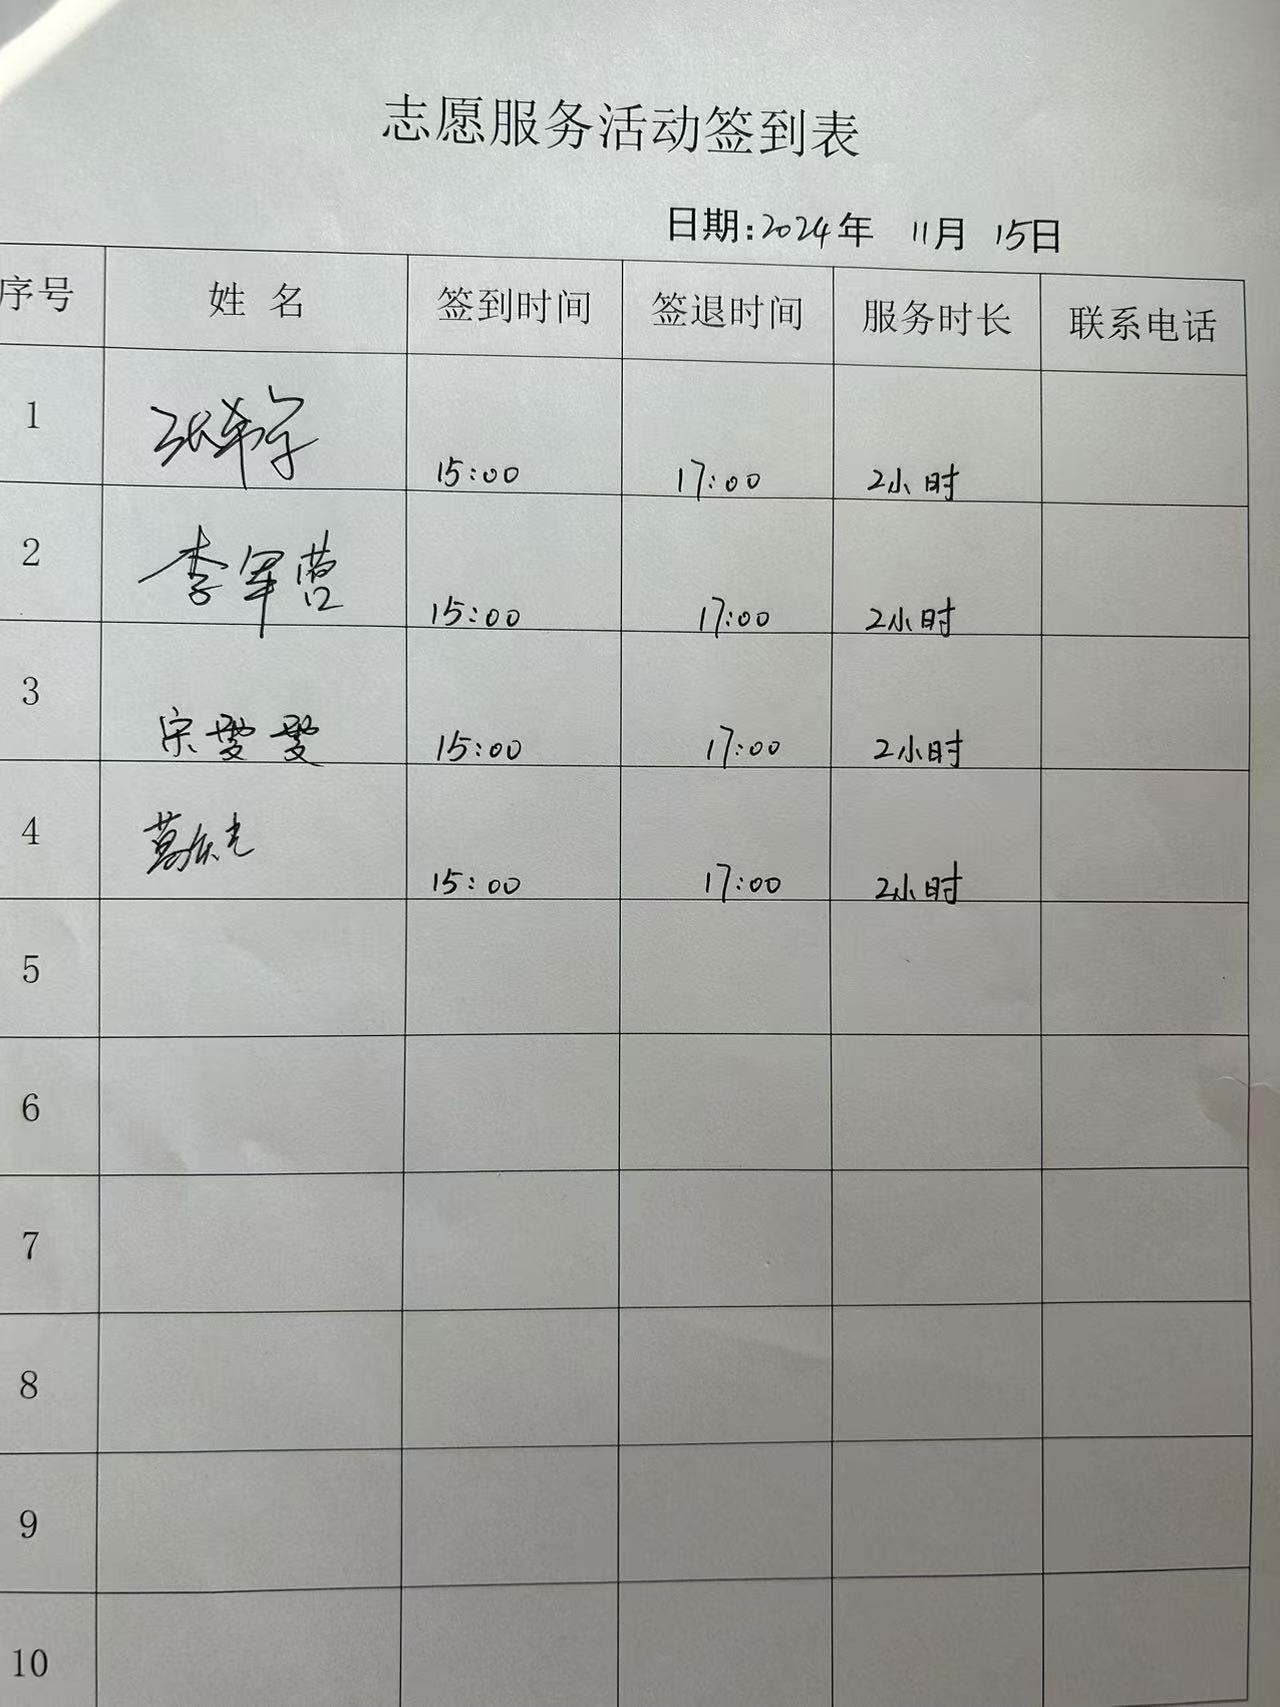 志愿服务活动签到表
日期:2024年 11月 15日
序号 姓名 签到时间 签退时间 服务时长 联系电话
1 15:00 17:00 2小时
2 李军营 15:00 17:00 2小时
3 宋雯雯 15:00 17:00 2小时
4 15:00 17:00 2小时
5
6
7
8
9
10